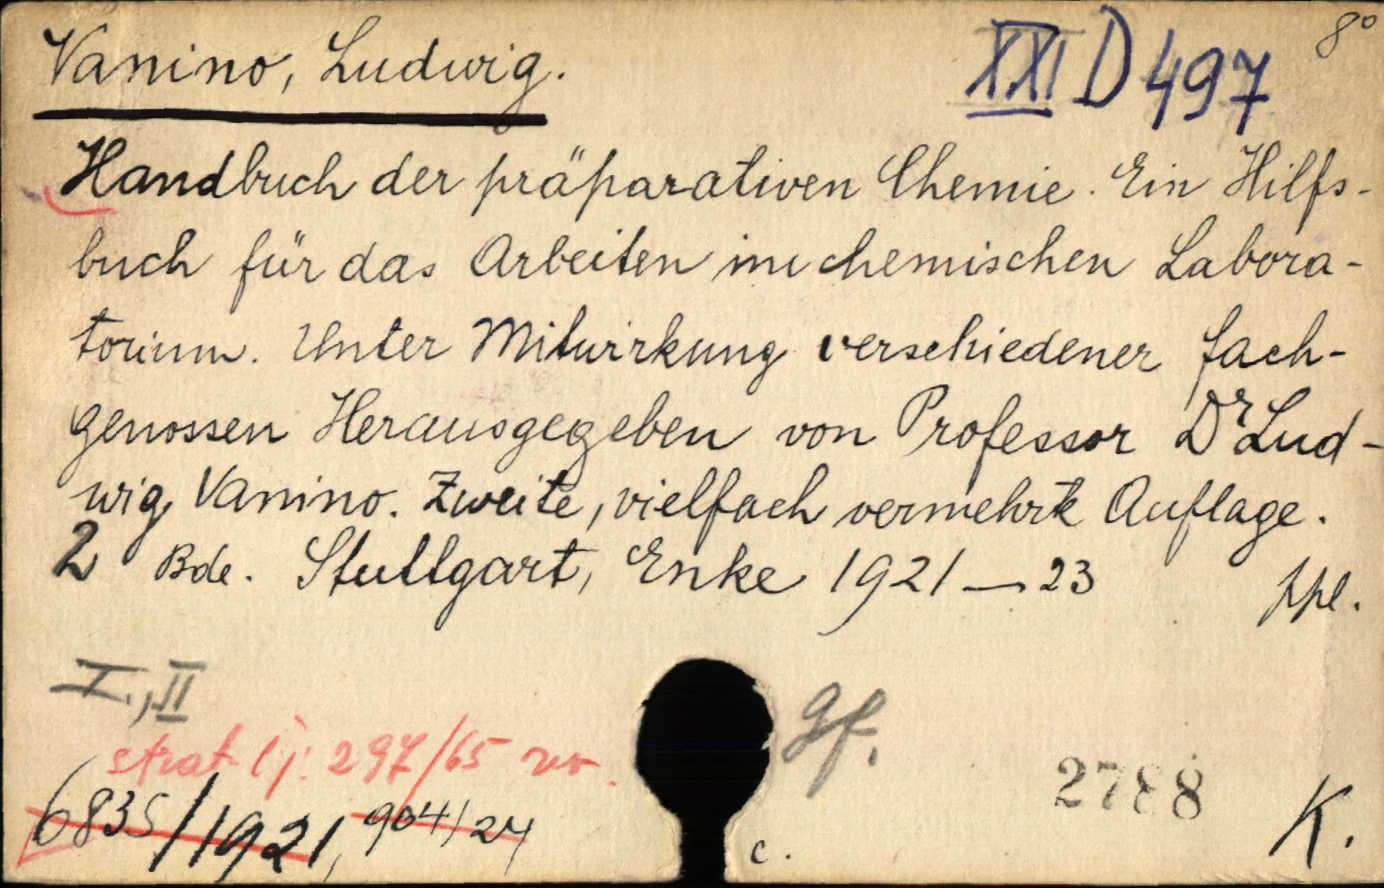 8°
Vanino, Ludwig.
XXI D 497
Handbuch der präparativen Chemie. Ein Hilfs-
buch für das Arbeiten im chemischen Labora-
torium. Unter Mitwirkung verschiedener Fach-
genossen Herausgegeben von Professor Dr Lud-
wig Vanino. Zweite, vielfach vermehrte Auflage.
2 Bde. Stuttgart, Enke 1921—23
ppl.
I., II
gf.
strat. lj: 297/65
2788
6835/1921, 904/24
c.
K.